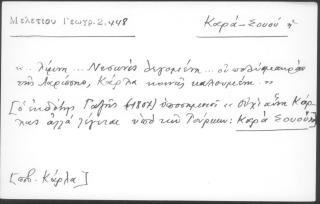 Μελετίου Γεωγρ. 2. 448
Καρά-Σουού ἡ
«.. λίμνη ... Νεσωνὶς λεγομένη ... οὐ πολὺ μακρὰν
τῆς Λαρίσσης, Κάρλα κοινῶς καλουμένη.. »
[ὁ ἐκδότης Γαζῆς (1807) ὑποσημειοῖ « οὐχὶ αὕτη Κάρ-
λας ἀλλὰ λέγεται ὑπὸ τῶν Τούρκων: Καρά Σουού»]
[πβ. Κάρλα]